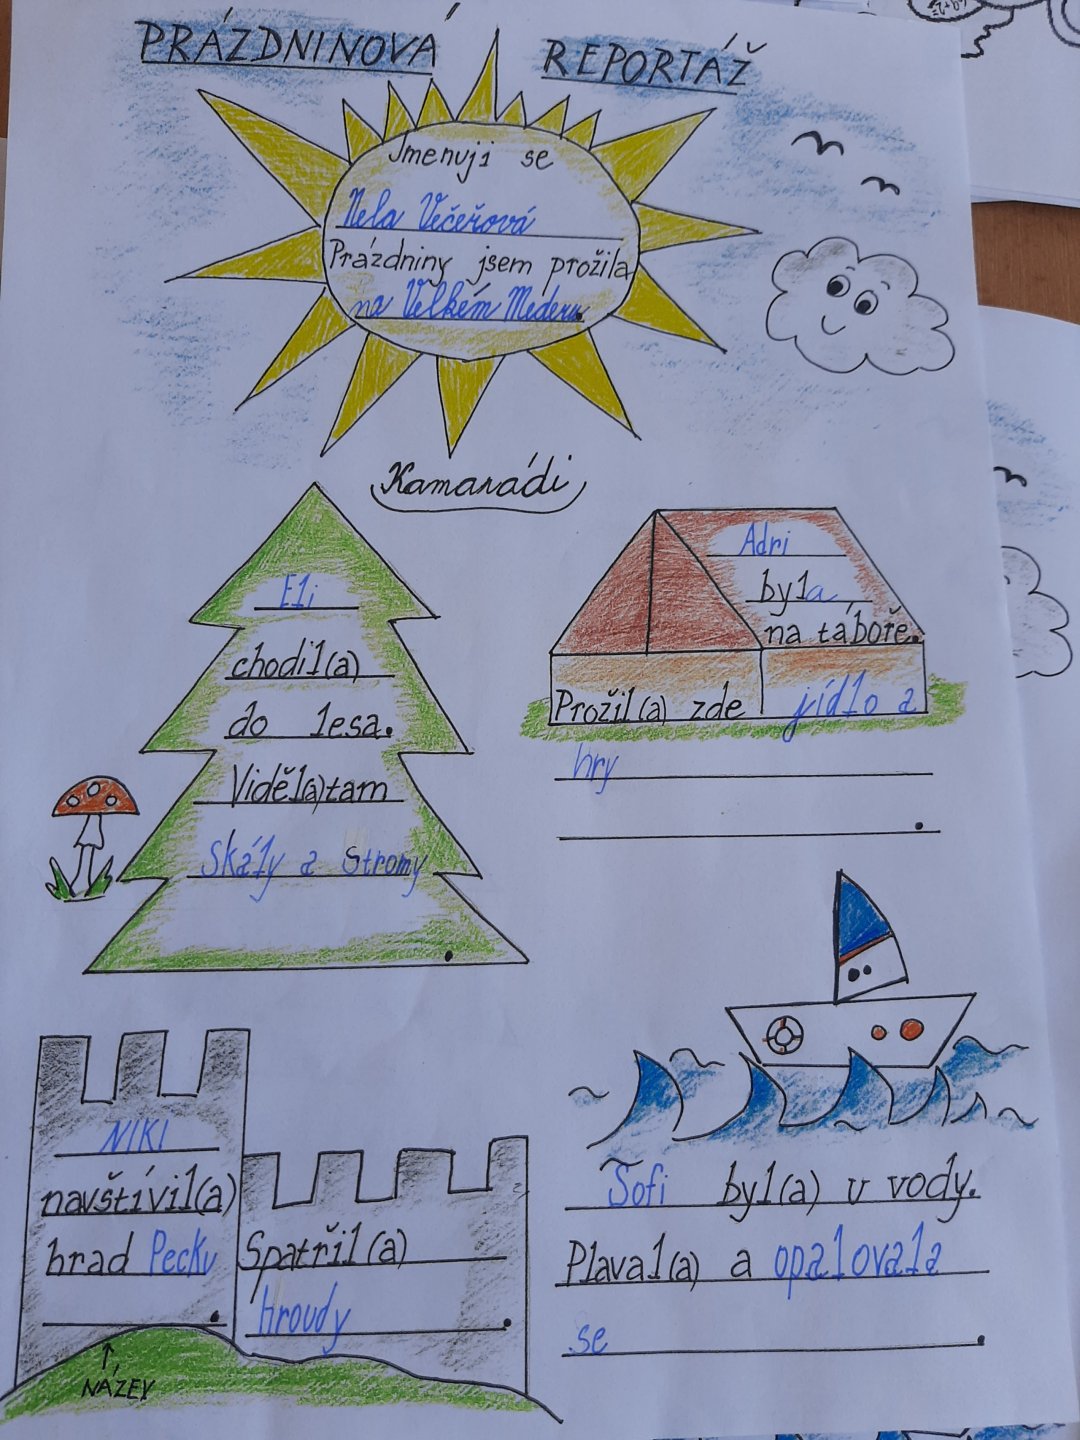 PRÁZDNINOVÁ REPORTÁŽ
Jmenuji se
Nela Večeřová
Prázdniny jsem prožila
na Velkém Mederu.
Kamarádi
Eli
chodil(a)
do lesa.
Viděl(a) tam
Skály a Stromy
.
Adri
byla
na táboře.
Prožil(a) zde jídlo a
hry
.
NIKI
navštívil(a)
hrad Pecku
.
NÁZEV
Spatřil(a)
Hroudy.
Sofi byl(a) u vody.
Plaval(a) a opalovala
se.